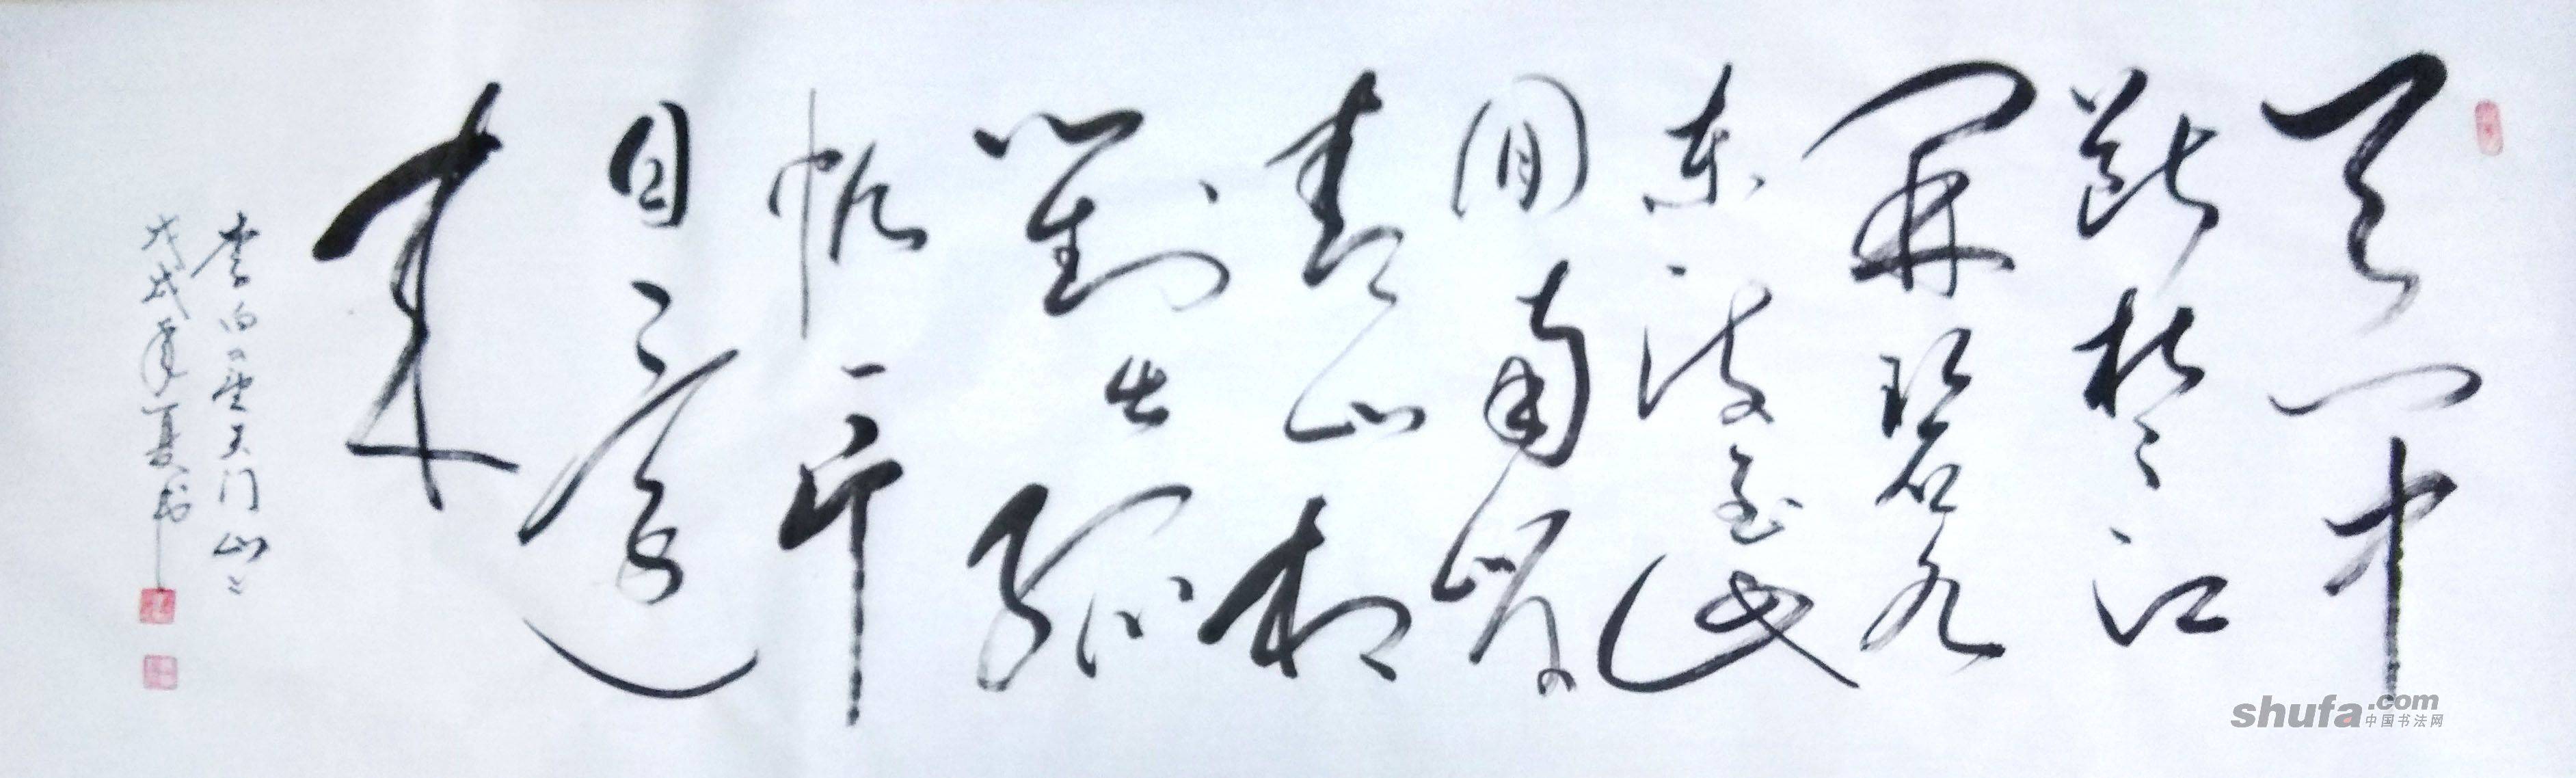 天门中
断楚江
開碧水
东流至此
回兩岸
青山相
對出孤
帆一片
日邊
来
李白《望天门山》
戊戌年夏书
shufa.com
中国书法网